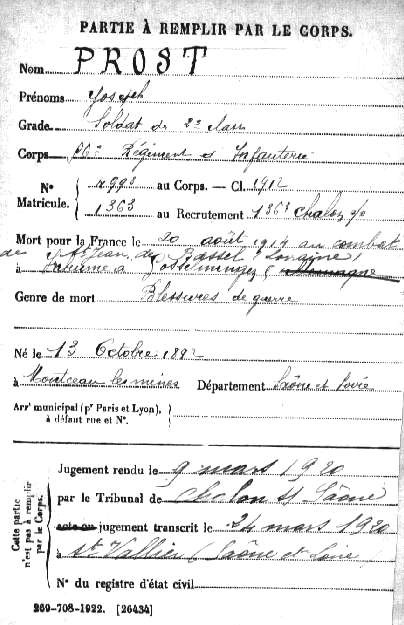 PARTIE À REMPLIR PAR LE CORPS.
Nom PROST
Prénoms Joseph
Grade Soldat de 2e classe
Corps Régiment d'Infanterie
Nº Matricule. { 4993 au Corps. — Cl. 1912
1363 au Recrutement 1363 Chalon s/s
Mort pour la France le 20 août 1914 au combat
de St Jean de Basset (Lorraine)
à inhumé à Gosselmingen
Genre de mort Blessures de guerre
Né le 13 Octobre 1892
à Montceau les mines Département Saône et Loire
Arrt municipal (pr Paris et Lyon), à défaut rue et Nº.
Cette partie n'est pas à remplir par le Corps.
Jugement rendu le 9 mars 1920
par le Tribunal de Chalon s/ Saône
acte ou jugement transcrit le 24 mars 1920
à St Vallier (Saône et Loire)
Nº du registre d'état civil
269-708-1922. [26434]